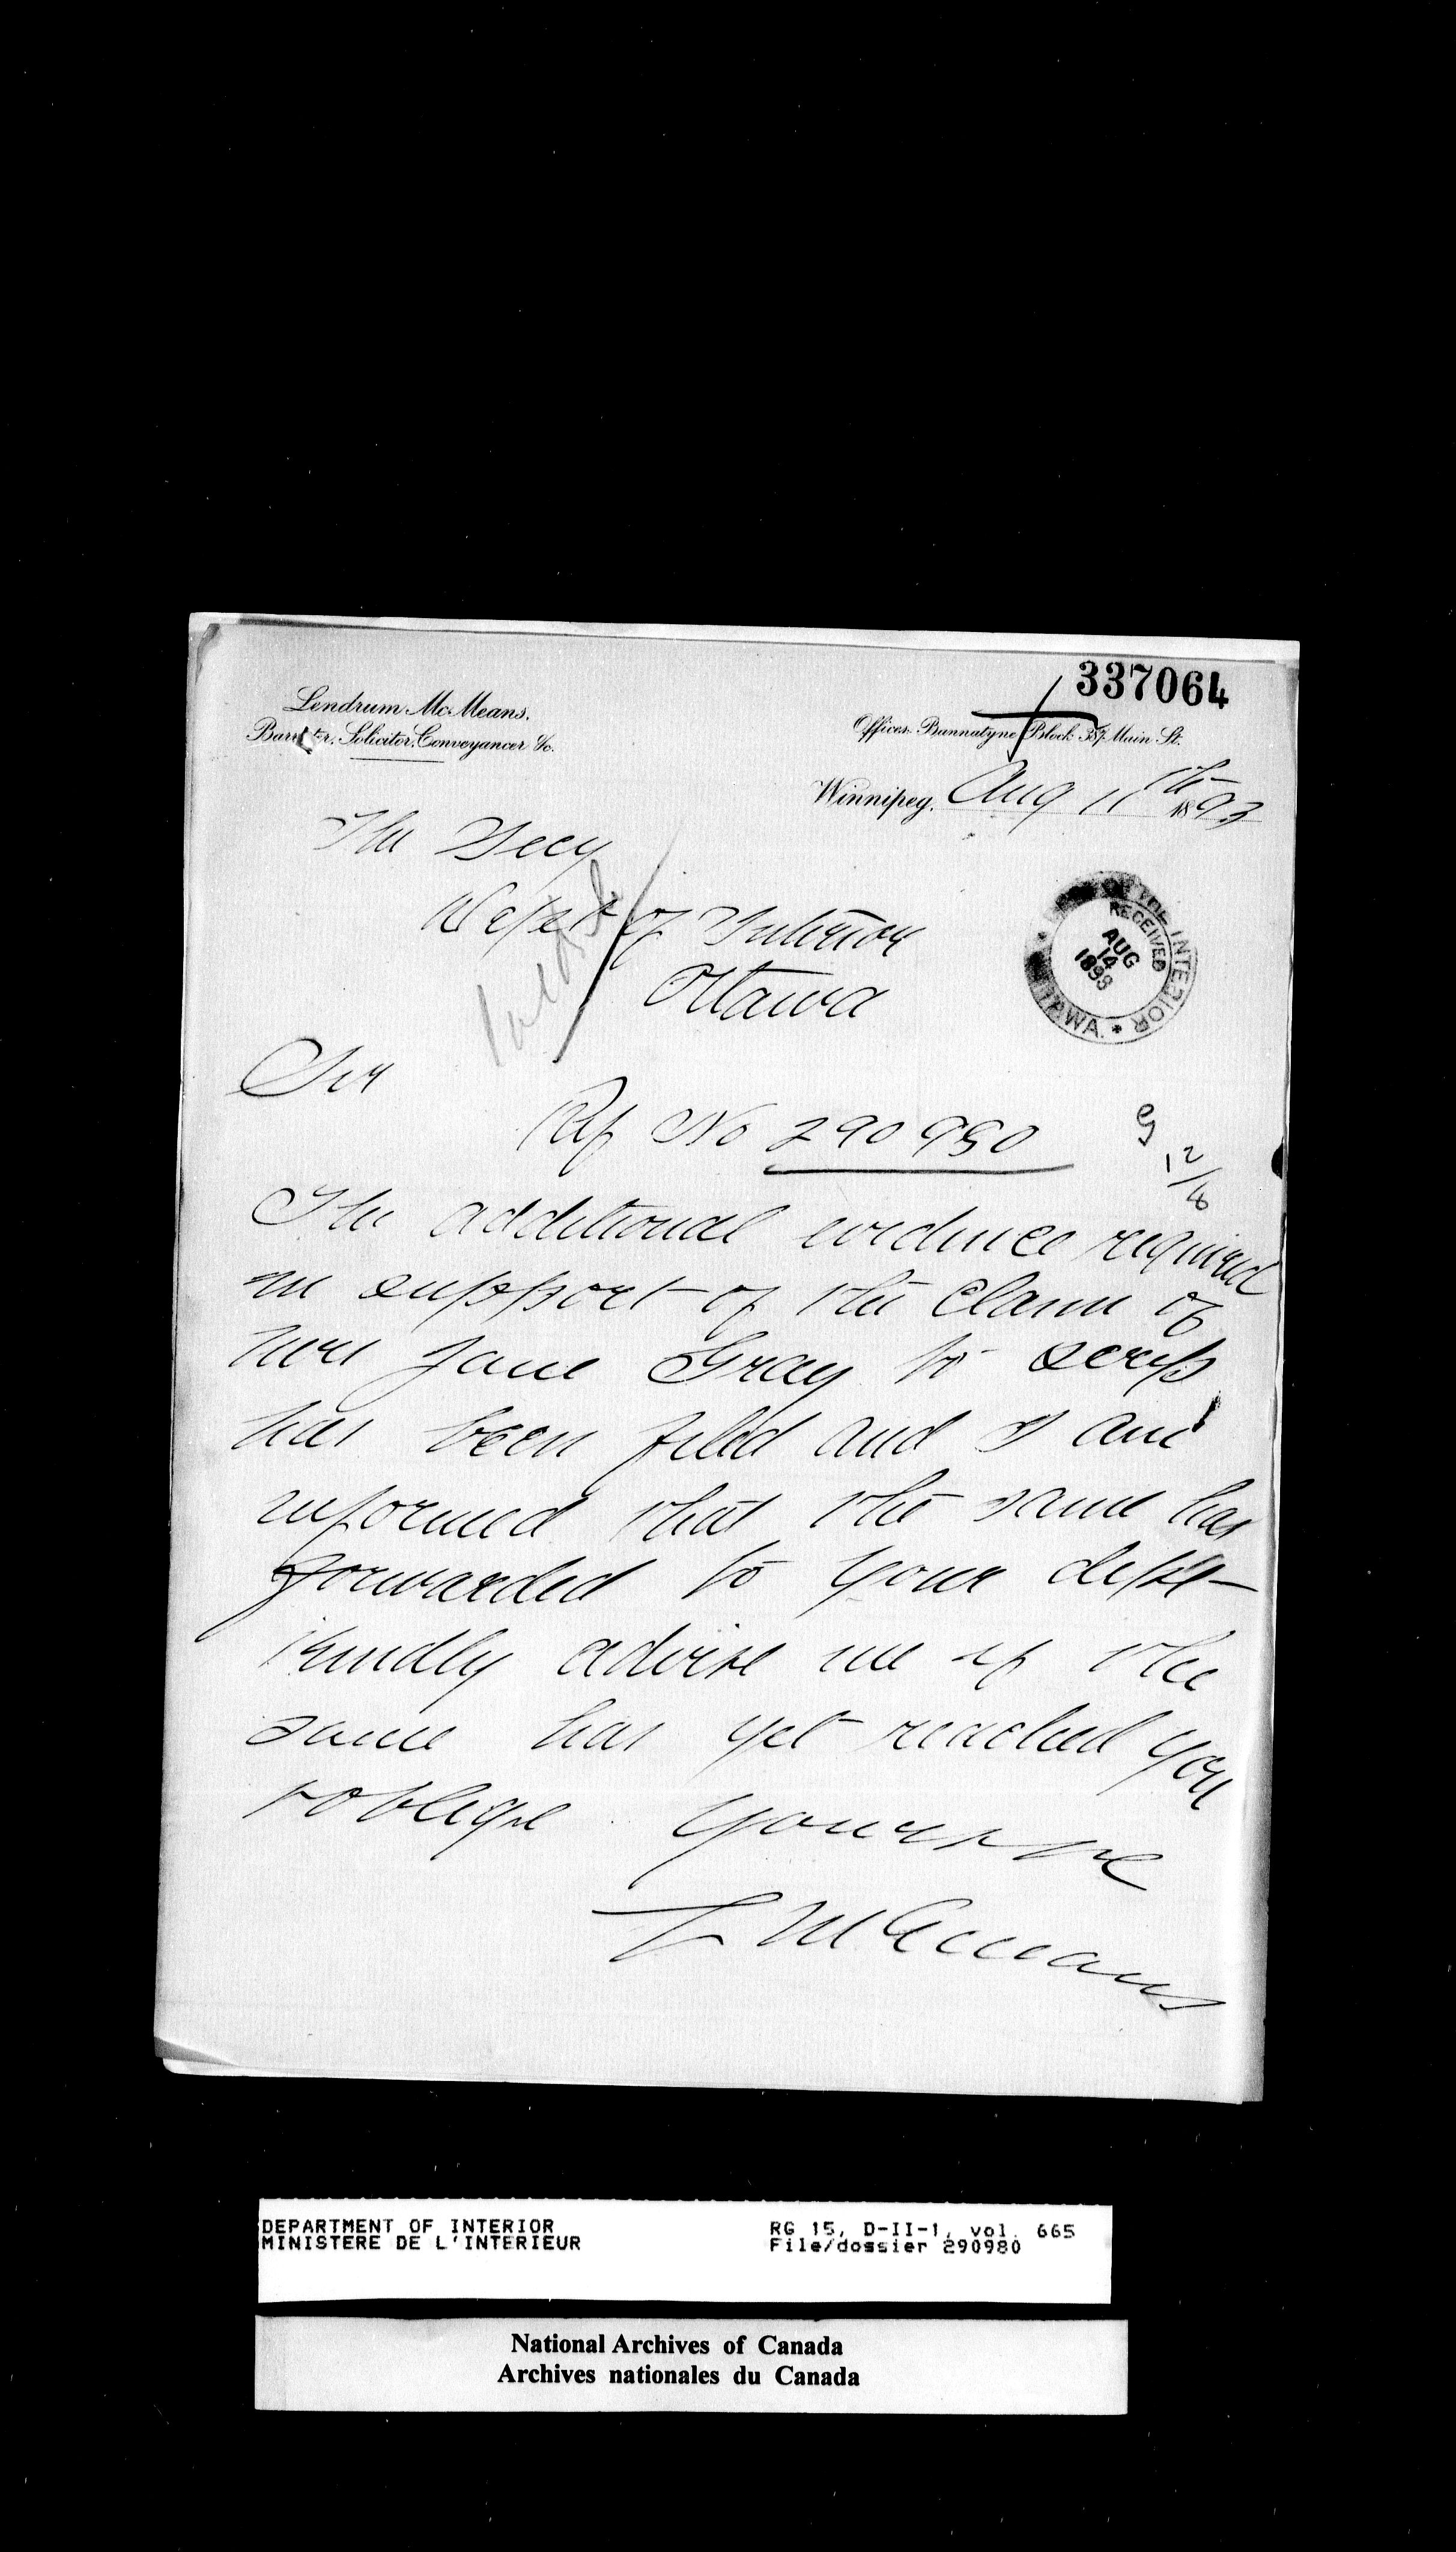 337064
Lendrum McMeans.
Barrister, Solicitor, Conveyancer &c.
Offices Bannatyne Block 387 Main St.
Winnipeg, Aug 11th 1893
The Secy
Dept of Interior
Ottawa
THE INTERIOR
RECEIVED
AUG
14
1893
OTTAWA.
Sir
Ref No 290980
G
12/8
The additional evidence required
in support of the Claim of
Mrs Jane Gray to scrip
has been filed and I am
informed that the same has
forwarded to your dept-
Kindly advise me if the
same has yet reached you
& oblige Yours &c
L McMeans
DEPARTMENT OF INTERIOR
MINISTERE DE L'INTERIEUR
RG 15, D-II-1, vol. 665
File/dossier 290980
National Archives of Canada
Archives nationales du Canada